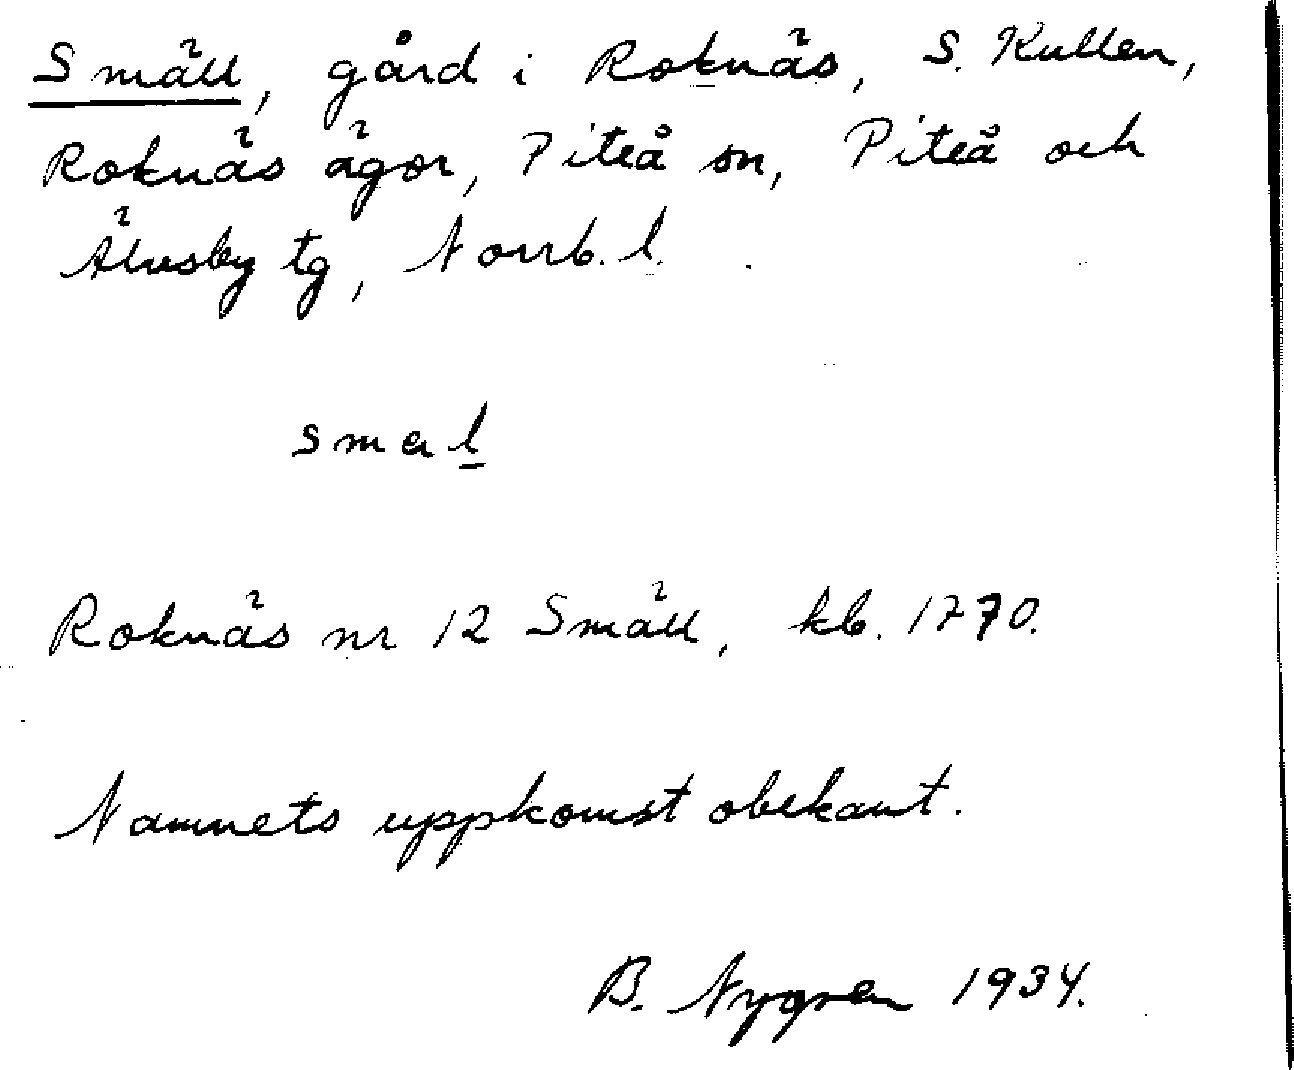 Smäll, gård i Roknäs, S. Kullen,
Roknäs ägor, Piteå sn, Piteå och
Älvsby tg, Norrb. l.
smal
Roknäs nr 12 Smäll, kb. 1770.
Namnets uppkomst obekant.
B. Nygren 1934.